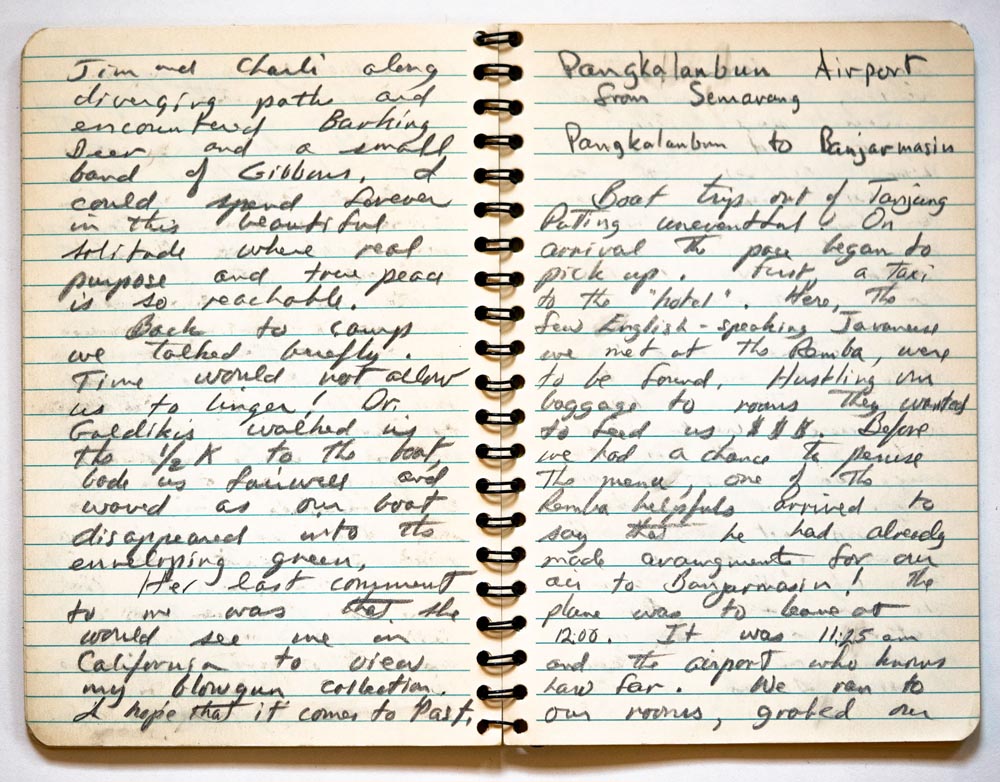 Jim and Charli along
diverging paths and
encountered Barking
Deer and a small
band of Gibbons. I
could spend forever
in this beautiful
solitude where real
purpose and true peace
is so reachable.
Back to camp
we talked briefly.
Time would not allow
us to linger! Dr.
Galdikis walked us
the 1/2 K to the boat,
bode us fairwell and
waved as our boat
disappeared into the
enveloping green.
Her last comment
to me was that she
would see me in
California to view
my blowgun collection.
I hope that it comes to Past.
Pangkalanbun Airport
from Semarang
Pangkalanbun to Banjarmasin
Boat trip out of Tanjung
Putting uneventful! On
arrival the pace began to
pick up. First, a Taxi
to the "hotel". Here, the
few English-speaking Javanese
we met at the Rimba, were
to be found. Hustling our
baggage to rooms they wanted
to feed us, $$$. Before
we had a chance to peruse
the menu, one of the
Rimba helpfuls arrived to
say that he had already
made arrangments for our
air to Banjarmasin! The
plane was to leave at
12:00. It was 11:25 am
and the airport who knows
how far. We ran to
our rooms, grabed our